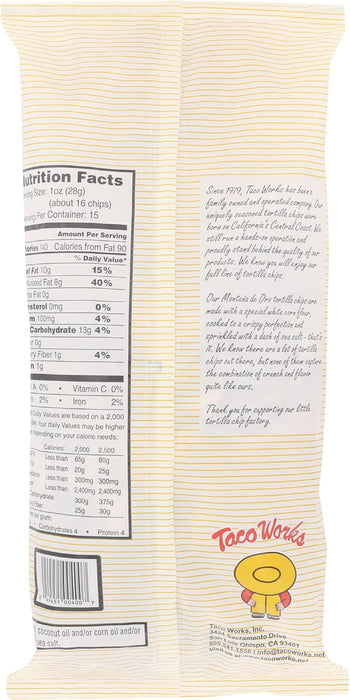 Nutrition Facts
Size: 1oz (28g)
(about 16 chips)
Per Container: 15
Amount Per Serving
Calories 140 Calories from Fat 90
% Daily Value*
Fat 10g 15%
Fat 8g 40%
Fat 0g
0mg 0%
100mg 4%
Carbohydrate 13g 4%
0g
Fiber 1g 4%
1g
A 0% • Vitamin C 0%
2% • Iron 2%
Daily Values are based on a 2,000
Your daily Values may be higher
depending on your calorie needs:
Calories: 2,000 2,500
Less than 65g 80g
Less than 20g 25g
Less than 300mg 300mg
Less than 2,400mg 2,400mg
300g 375g
25g 30g
per gram:
• Carbohydrates 4 • Protein 4
coconut oil and/or corn oil and/or
sea salt.
Since 1979, Taco Works has been a
family owned and operated company. Our
uniquely seasoned tortilla chips were
born on California's Central Coast. We
still run a hands-on operation and
proudly stand behind the quality of our
products. We know you will enjoy our
full line of tortilla chips.
Our Montaña de Oro tortilla chips are
made with a special white corn flour,
cooked to a crispy perfection and
sprinkled with a dash of sea salt - that's
it. We know there are a lot of tortilla
chips out there, but none of them capture
the combination of crunch and flavor
quite like ours.
Thank you for supporting our little
tortilla chip factory.
Taco Works
Taco Works, Inc.
3424 Sacramento Drive
San Luis Obispo, CA 93401
805.541.1556 | info@tacoworks.net
Visit us at www.tacoworks.net